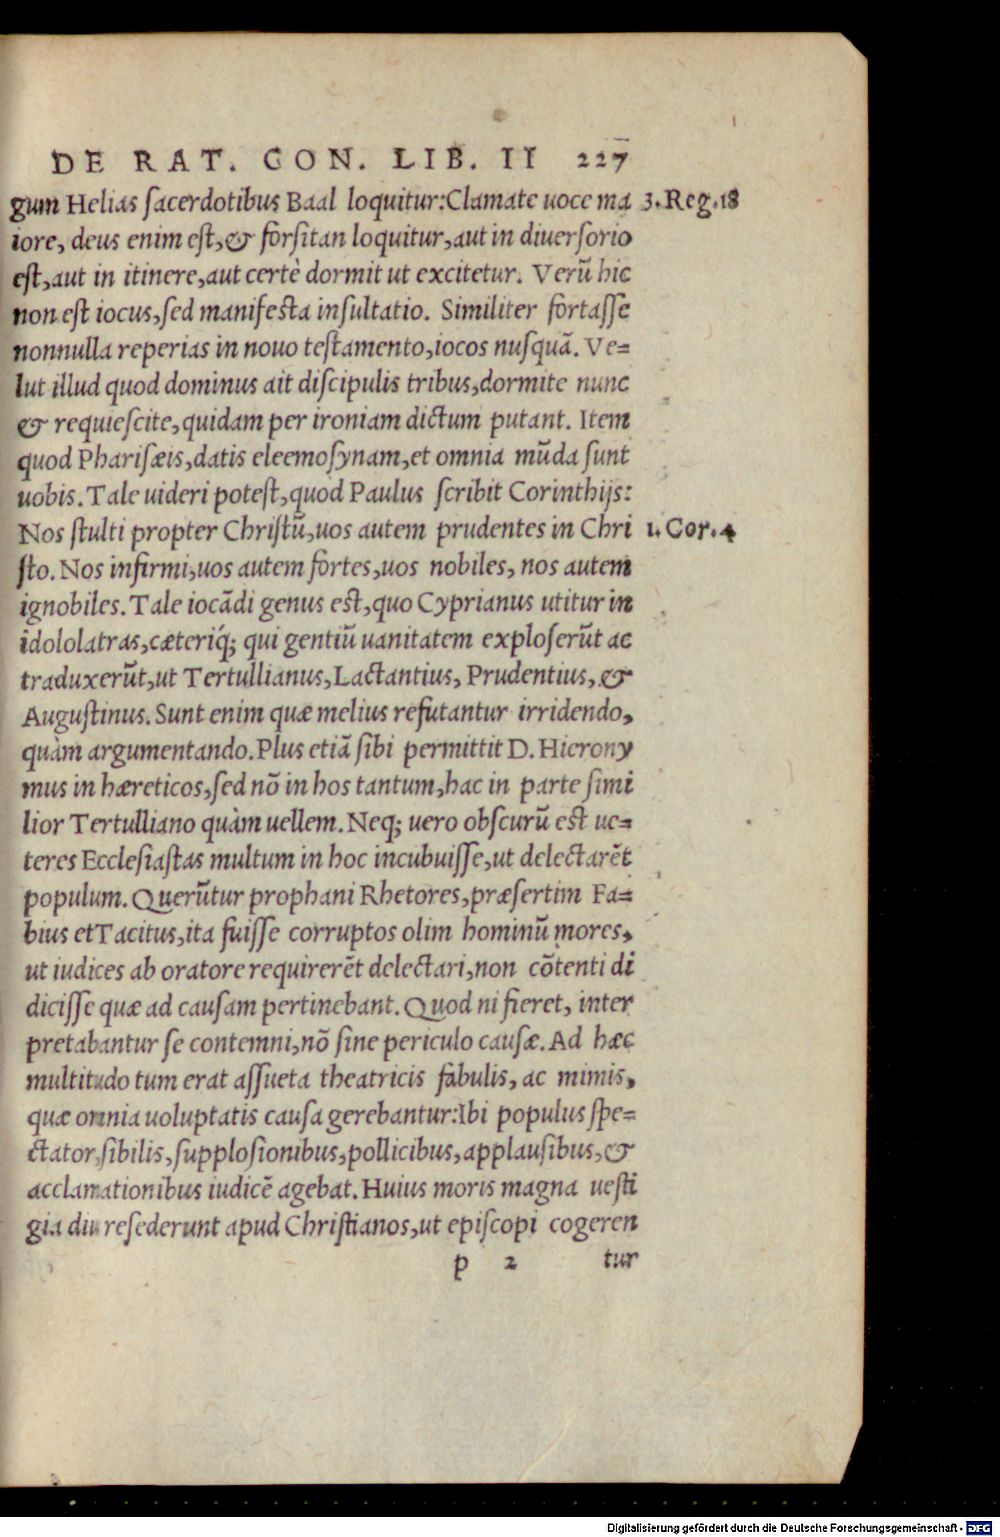 DE RAT. CON. LIB. II 227
gum Helias sacerdotibus Baal loquitur:Clamate uoce ma 3.Reg.18
iore, deus enim est,& forsitan loquitur,aut in diuersorio
est,aut in itinere,aut certè dormit ut excitetur. Verũ hic
non est iocus,sed manifesta insultatio. Similiter fortasse
nonnulla reperias in nouo testamento,iocos nusquã. Ve=
lut illud quod dominus ait discipulis tribus,dormite nunc
& requiescite,quidam per ironiam dictum putant. Item
quod Pharisæis,datis eleemosynam,et omnia mũda sunt
uobis. Tale uideri potest,quod Paulus scribit Corinthijs:
Nos stulti propter Christũ,uos autem prudentes in Chri 1. Cor. 4
sto. Nos infirmi,uos autem fortes,uos nobiles, nos autem
ignobiles. Tale iocãdi genus est,quo Cyprianus utitur in
idololatras,cæteriq́; qui gentiũ uanitatem exploserũt ac
traduxerũt,ut Tertullianus,Lactantius, Prudentius,&
Augustinus. Sunt enim quæ melius refutantur irridendo,
quàm argumentando. Plus etiã sibi permittit D. Hierony
mus in hæreticos,sed nõ in hos tantum,hac in parte simi
lior Tertulliano quàm uellem. Neq; uero obscurũ est ue=
teres Ecclesiastas multum in hoc incubuisse,ut delectarẽt
populum. Querũtur prophani Rhetores,præsertim Fa=
bius et Tacitus,ita fuisse corruptos olim hominũ mores,
ut iudices ab oratore requirerẽt delectari,non cõtenti di
dicisse quæ ad causam pertinebant. Quod ni fieret, inter
pretabantur se contemni,nõ sine periculo causæ. Ad hæc
multitudo tum erat assueta theatricis fabulis, ac mimis,
quæ omnia uoluptatis causa gerebantur:Ibi populus spe=
ctator,sibilis,supplosionibus,pollicibus,applausibus,&
acclamationibus iudicẽ agebat. Huius moris magna uesti
gia diu resederunt apud Christianos,ut episcopi cogeren
p 2 tur
Digitalisierung gefördert durch die Deutsche Forschungsgemeinschaft - DFG